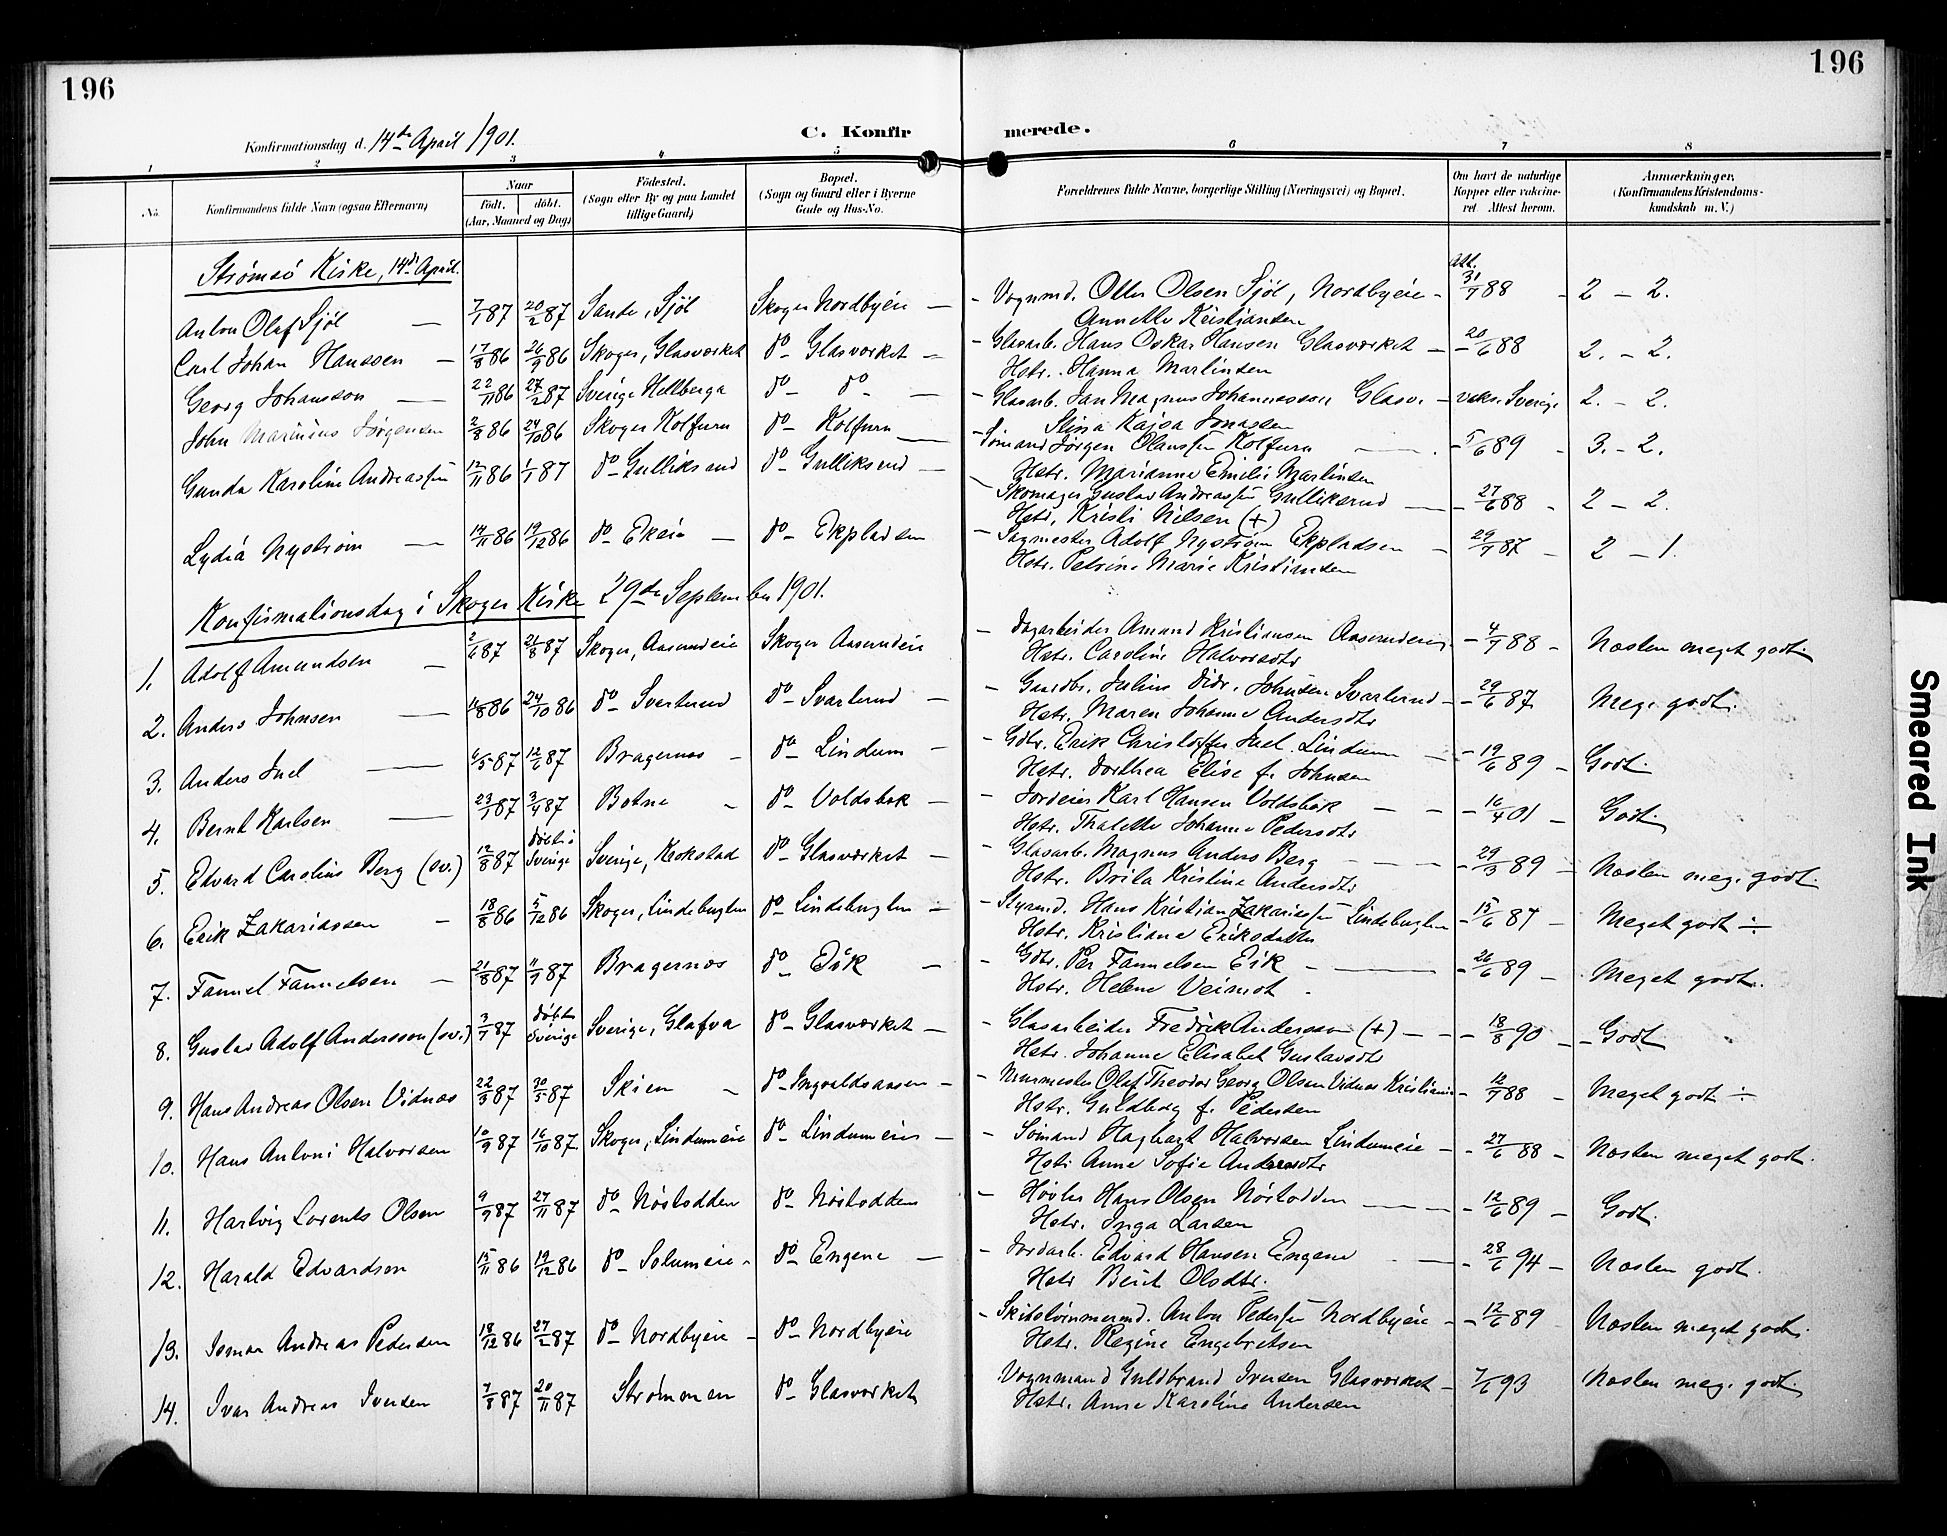 196
196
Konfirmationsdag d. 14de April 1901.
C. Konfir
merede.
1 2 3 4 5 6 7 8
No.
Konfirmandens fulde Navn (ogsaa Efternavn)
Naar
födt. döbt.
(Aar, Maaned og Dag)
Födested.
(Sogn eller By og paa Landet
tillige Gaard)
Bopæl.
(Sogn og Gaard eller i Byerne
Gade og Hus-No.
Forældrenes fulde Navne, borgerlige Stilling (Næringsvei) og Bopæl.
Om havt de naturlige
Kopper eller vaccine-
ret. Attest herom.
Anmærkninger.
(Konfirmandens Kristendoms-
kundskab m. V.)
Strømsö Kirke, 14de April.
Anton Olaf Sjöl — 7/1 87 20/2 87 Sande, Sjöl Skoger Nordbyeie — - Vognmd. Otter Olsen Sjöl, Nordbyeie - Att. 31/7 88 - 2 - 2.
Annette Kristiansen
Carl Johan Hanssen — 17/8 86 26/9 86 Skoger, Glasværket do - Glasværket — - Glasarb. Hans Oskar Hansen Glasværket - - 20/6 88 2. - 2.
Hstr. Hanna Martinsen
Georg Johansson — 22/11 86 27/2 87 Sverige Hellberga do do — - Glasarb. Jan Magnus Johannesson Glasv. - vaks. Sverige 2. - 2.
Stina Kajsa Jonassen
John Marinius Jørgensen 2/8 86 24/10 86 Skoger Kolfuru do - Kolfuru — Sömand Jørgen Olaussen Kolfuru — - 5/6 89 - 3. - 2.
Hstr. Marianne Emilie Martinsen
Gunda Karoline Andreassen 12/11 86 1/1 87 do - Gulliksrud do - Gulliksrud — - Skomager Gustav Andreassen Gulliksrud — - 27/6 88 - 2 - 2.
Hstr. Kristi Nilsen (+)
Lydia Nyström — 14/11 86 19/12 86 do - Ekeie — do - Ekpladsen - Sagmester Adolf Nyström Ekpladsen - 29/7 87 - 2 - 1.
Hstr. Petrine Marie Kristiansen
Konfirmationsdag i Skoger Kirke 29de September 1901.
1. Adolf Amundsen — 2/6 87 21/8 87 Skoger, Aasrundeie Skoger Aasrundeie - Dagarbeider Amund Kristiansen Aasrundeie - 4/7 88 - Næsten meget godt.
Hstr. Caroline Halvorsdtr
2. Anders Johnsen — 4/8 86 24/10 86 do - Svarterud do - Svarterud — - Gaardbr. Julius Didr. Johnsen Svarterud - - 29/6 87. Meg. godt.
Hstr. Maren Johanne Andersdtr
3. Anders Juel — 6/5 87 12/6 87 Bragernæs - do - Lindum — - Gdbr. Erik Christoffer Juel. Lindum — - 19/6 89 - Godt.
Hstr. Dorthea Elise f. Johnsen
4. Bernt Karlsen — 23/1 87 3/4 87 Botne - do - Voldsbæk — - Jordeier Karl Hansen Voldsbæk — - 16/4 01 - Godt.
Hstr. Thalette Johanne Pedersdtr
5. Edvard Carolius Berg (sv.) 12/8 87 døbt i Sverige Sverige, Krokstad do - Glasværket — - Glasarb. Magnus Anders Berg — - 29/3 89 - Næsten meg. godt.
Hstr. Brita Kristina Andersdtr
6. Erik Zakariassen - 18/8 86 5/12 86 Skoger, Lindebugten do - Lindebugten — - Styrmd. Hans Kristian Zakariassen Lindebugten - 15/6 87 - Meget godt ÷
Hstr. Kristiane Eriksdatter
7. Fannel Fannelsen — 21/8 87 11/9 87 Bragernæs do - Eik — - Gdbr. Per Fannelsen Eik - — - 26/6 89 - Meget godt.
Hstr. Helene Veimot
8. Gustav Adolf Andersson (sv.) 3/7 87 døbt Sverige Sverige, Glafva do - Glasværket — - Glasarbeider Fredrik Andersson (+) - - 18/8 90 - - Godt
Hstr. Johanne Elisabet Gustavsdtr
9. Hans Andreas Olsen Vidnæs 22/3 87 30/5 87 Skien - do - Ingvaldsaasen - - Murmester Olaf Theodor Georg Olsen Vidnæs Kristiania - 12/7 88 - Meget godt ÷
Hstr. Guldborg f. Pedersen
10. Hans Antoni Halvorsen 10/9 87 16/10 87 Skoger, Lindumeie do - Lindumeie — - Sömand Hagbart Halvorsen Lindumeie - - 27/6 88 - Næsten meget godt.
Hstr. Anne Sofie Andersdtr
11. Hartvig Lorents Olsen 9/9 87 27/11 87 do - Nöstodden do - Nöstodden - Høvler Hans Olsen Nöstodden — - 12/6 89 - Godt.
Hstr. Inga Larsen
12. Harald Edvardsen 15/11 86 19/12 86 do - Solumeie - do - Engene — - Jordarb. Edvard Hansen Engene — - 28/6 94 - Næsten godt.
Hstr Berit Olsdtr.
13. Ismar Andreas Pedersen 18/12 86 27/2 87 do - Nordbyeie - do - Nordbyeie - Skibstömmermd. Anton Pedersen Nordbyeie - - 12/6 89 Næsten meget godt.
Hstr. Regine Engebretsen
14. Ivar Andreas Iversen 7/8 87 20/11 87 Strømmen do - Glasværket Vognmand Guldbrand Iversen Glasværket - 7/6 93 Næsten meg. godt.
Hstr. Anne Karoline Andersen
Smeared Ink